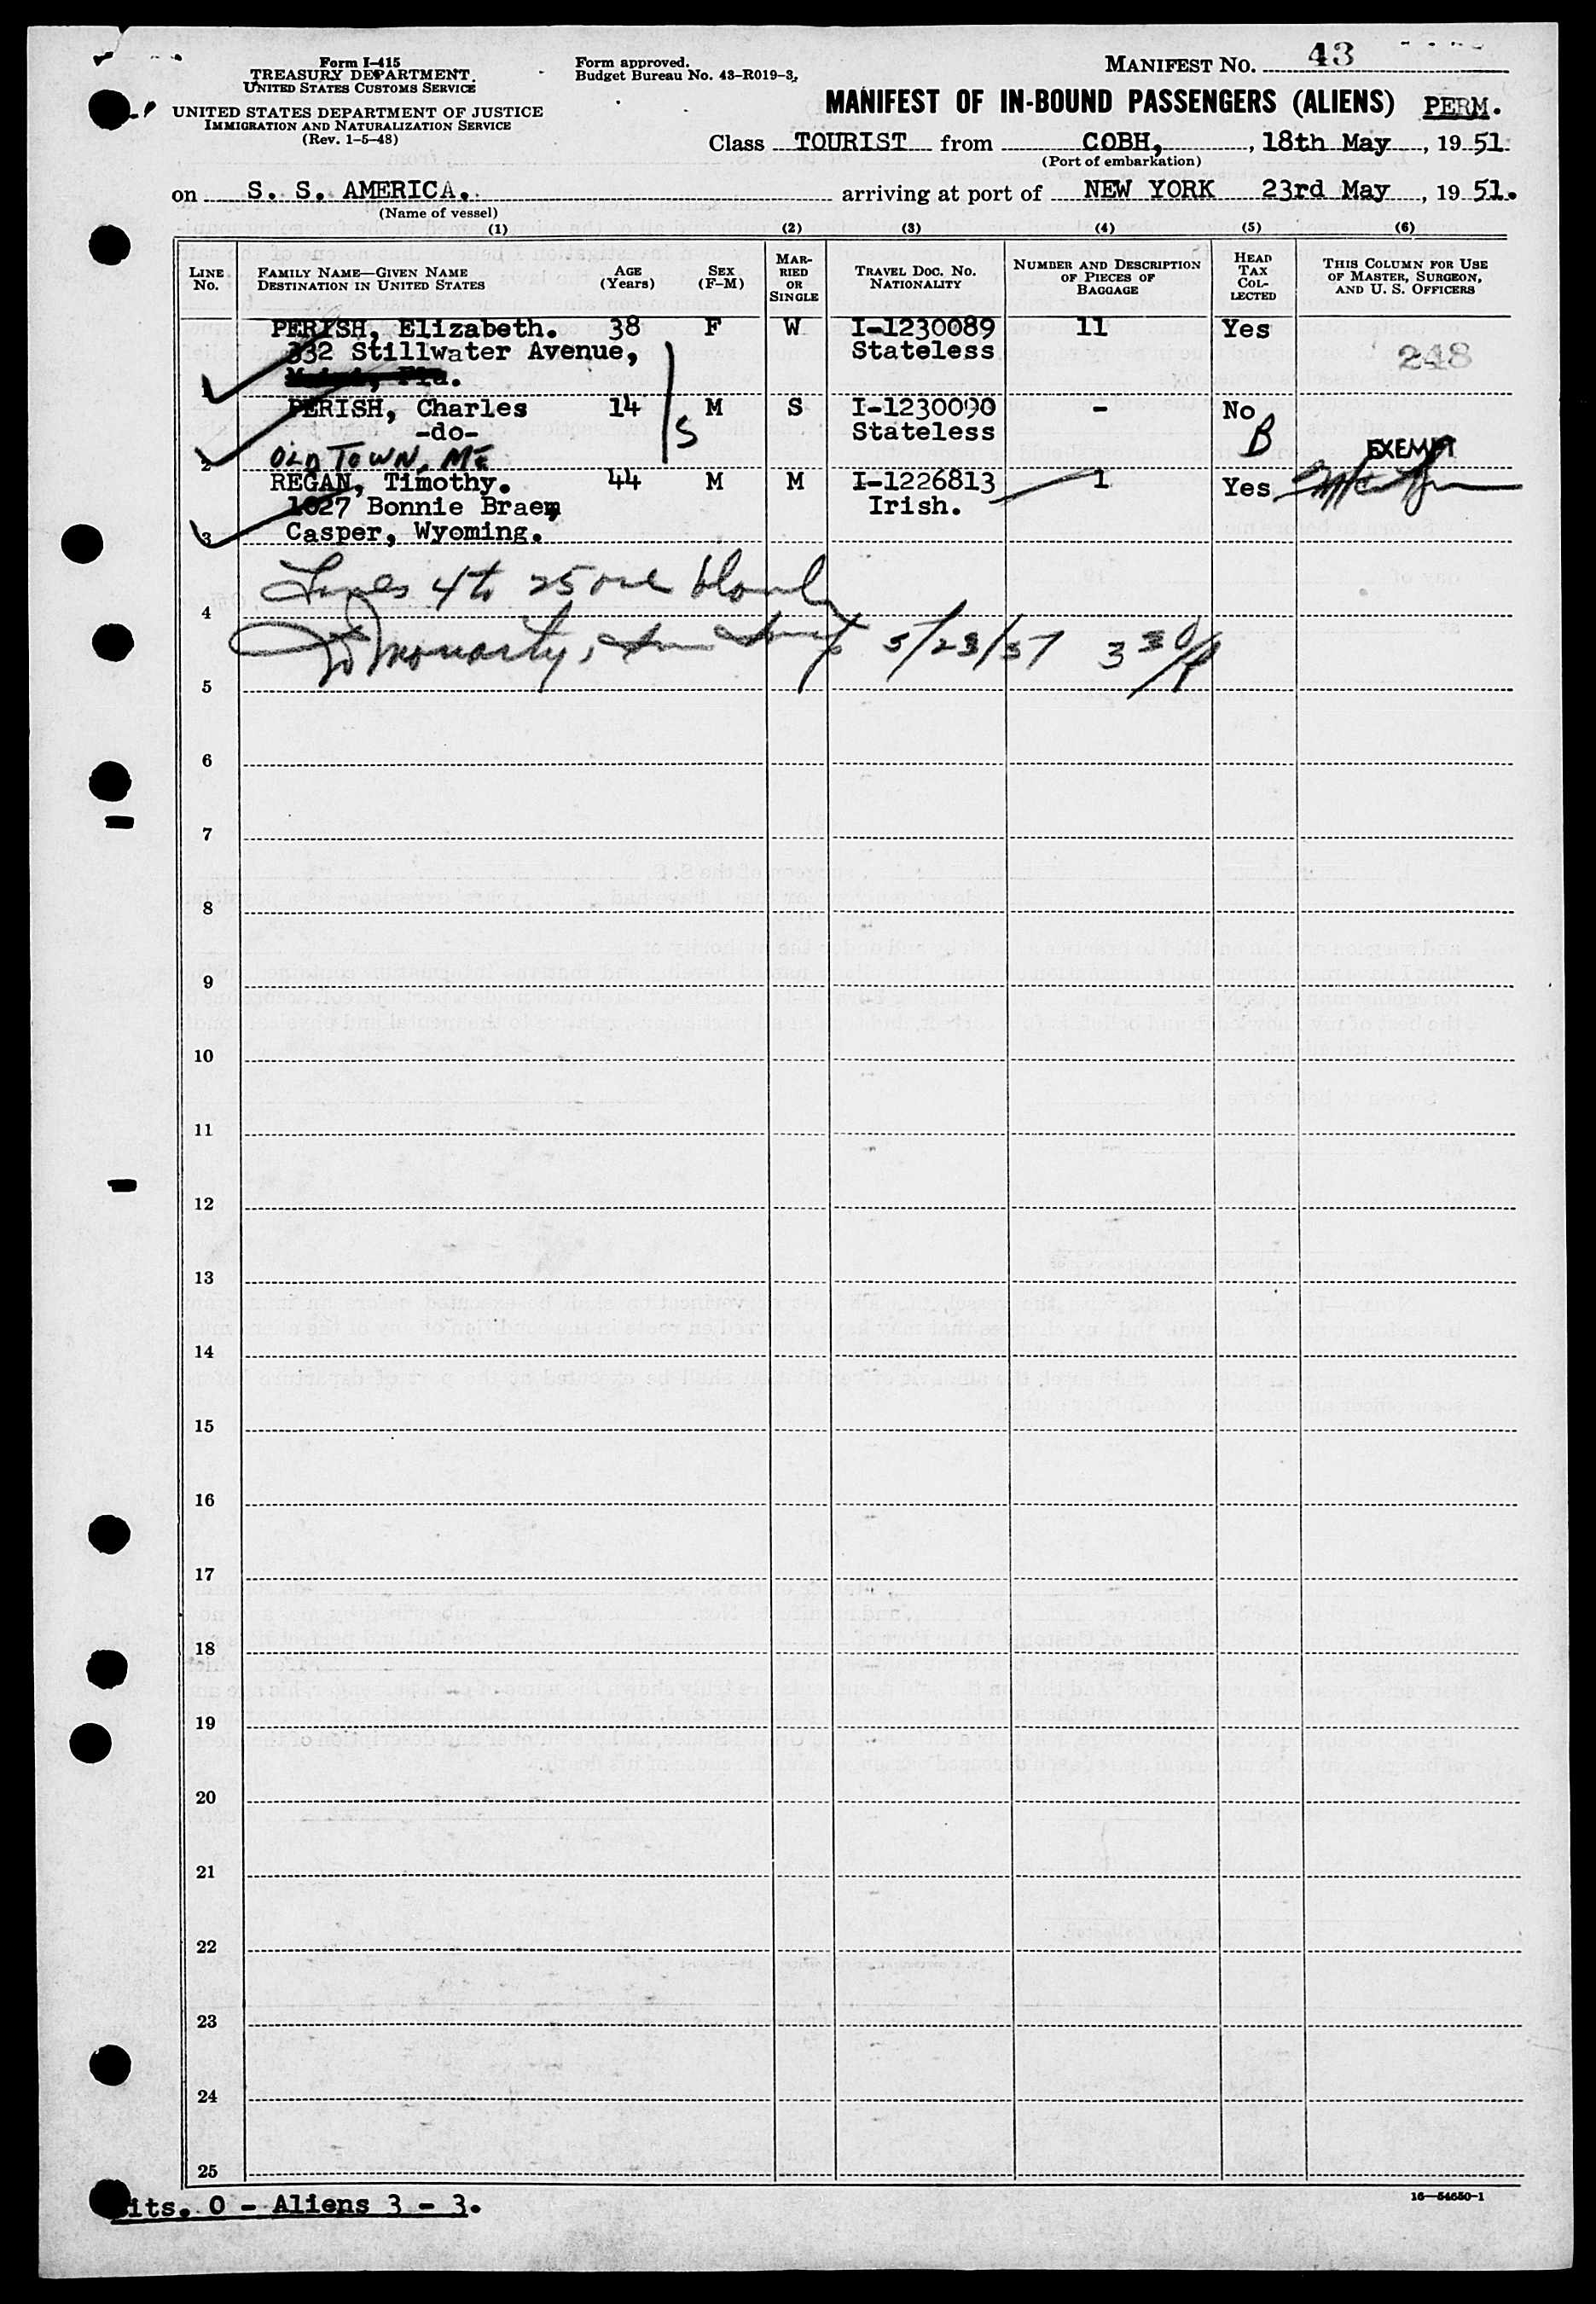 Form I-415
TREASURY DEPARTMENT
UNITED STATES CUSTOMS SERVICE
UNITED STATES DEPARTMENT OF JUSTICE
IMMIGRATION AND NATURALIZATION SERVICE
(Rev. 1-5-48)
Form approved.
Budget Bureau No. 43-R019-3.
MANIFEST NO. 43
MANIFEST OF IN-BOUND PASSENGERS (ALIENS) PERM.
Class TOURIST from COBH, 18th May, 19 51.
(Port of embarkation)
on S. S. AMERICA. arriving at port of NEW YORK 23rd May, 19 51.
(Name of vessel)
(1) (2) (3) (4) (5) (6)
LINE No. FAMILY NAME—GIVEN NAME DESTINATION IN UNITED STATES AGE (Years) SEX (F-M) MARRIED OR SINGLE TRAVEL DOC. NO. NATIONALITY NUMBER AND DESCRIPTION OF PIECES OF BAGGAGE HEAD TAX COLLECTED THIS COLUMN FOR USE OF MASTER, SURGEON, AND U. S. OFFICERS
PERISH, Elizabeth. 38 F W I-1230089 11 Yes
332 Stillwater Avenue, Stateless 248
1
PERISH, Charles 14 M S I-1230090 - No
-do- S Stateless B
2 OLD TOWN, ME EXEMPT
REGAN, Timothy. 44 M M I-1226813 1 Yes
1027 Bonnie Brae, Irish.
3 Casper, Wyoming.
Lines 4 to 25 are blank
4
Moriarty, 5/23/51 3 30/P
5
6
7
8
9
10
11
12
13
14
15
16
17
18
19
20
21
22
23
24
25
its. 0 - Aliens 3 - 3.
16—54650-1